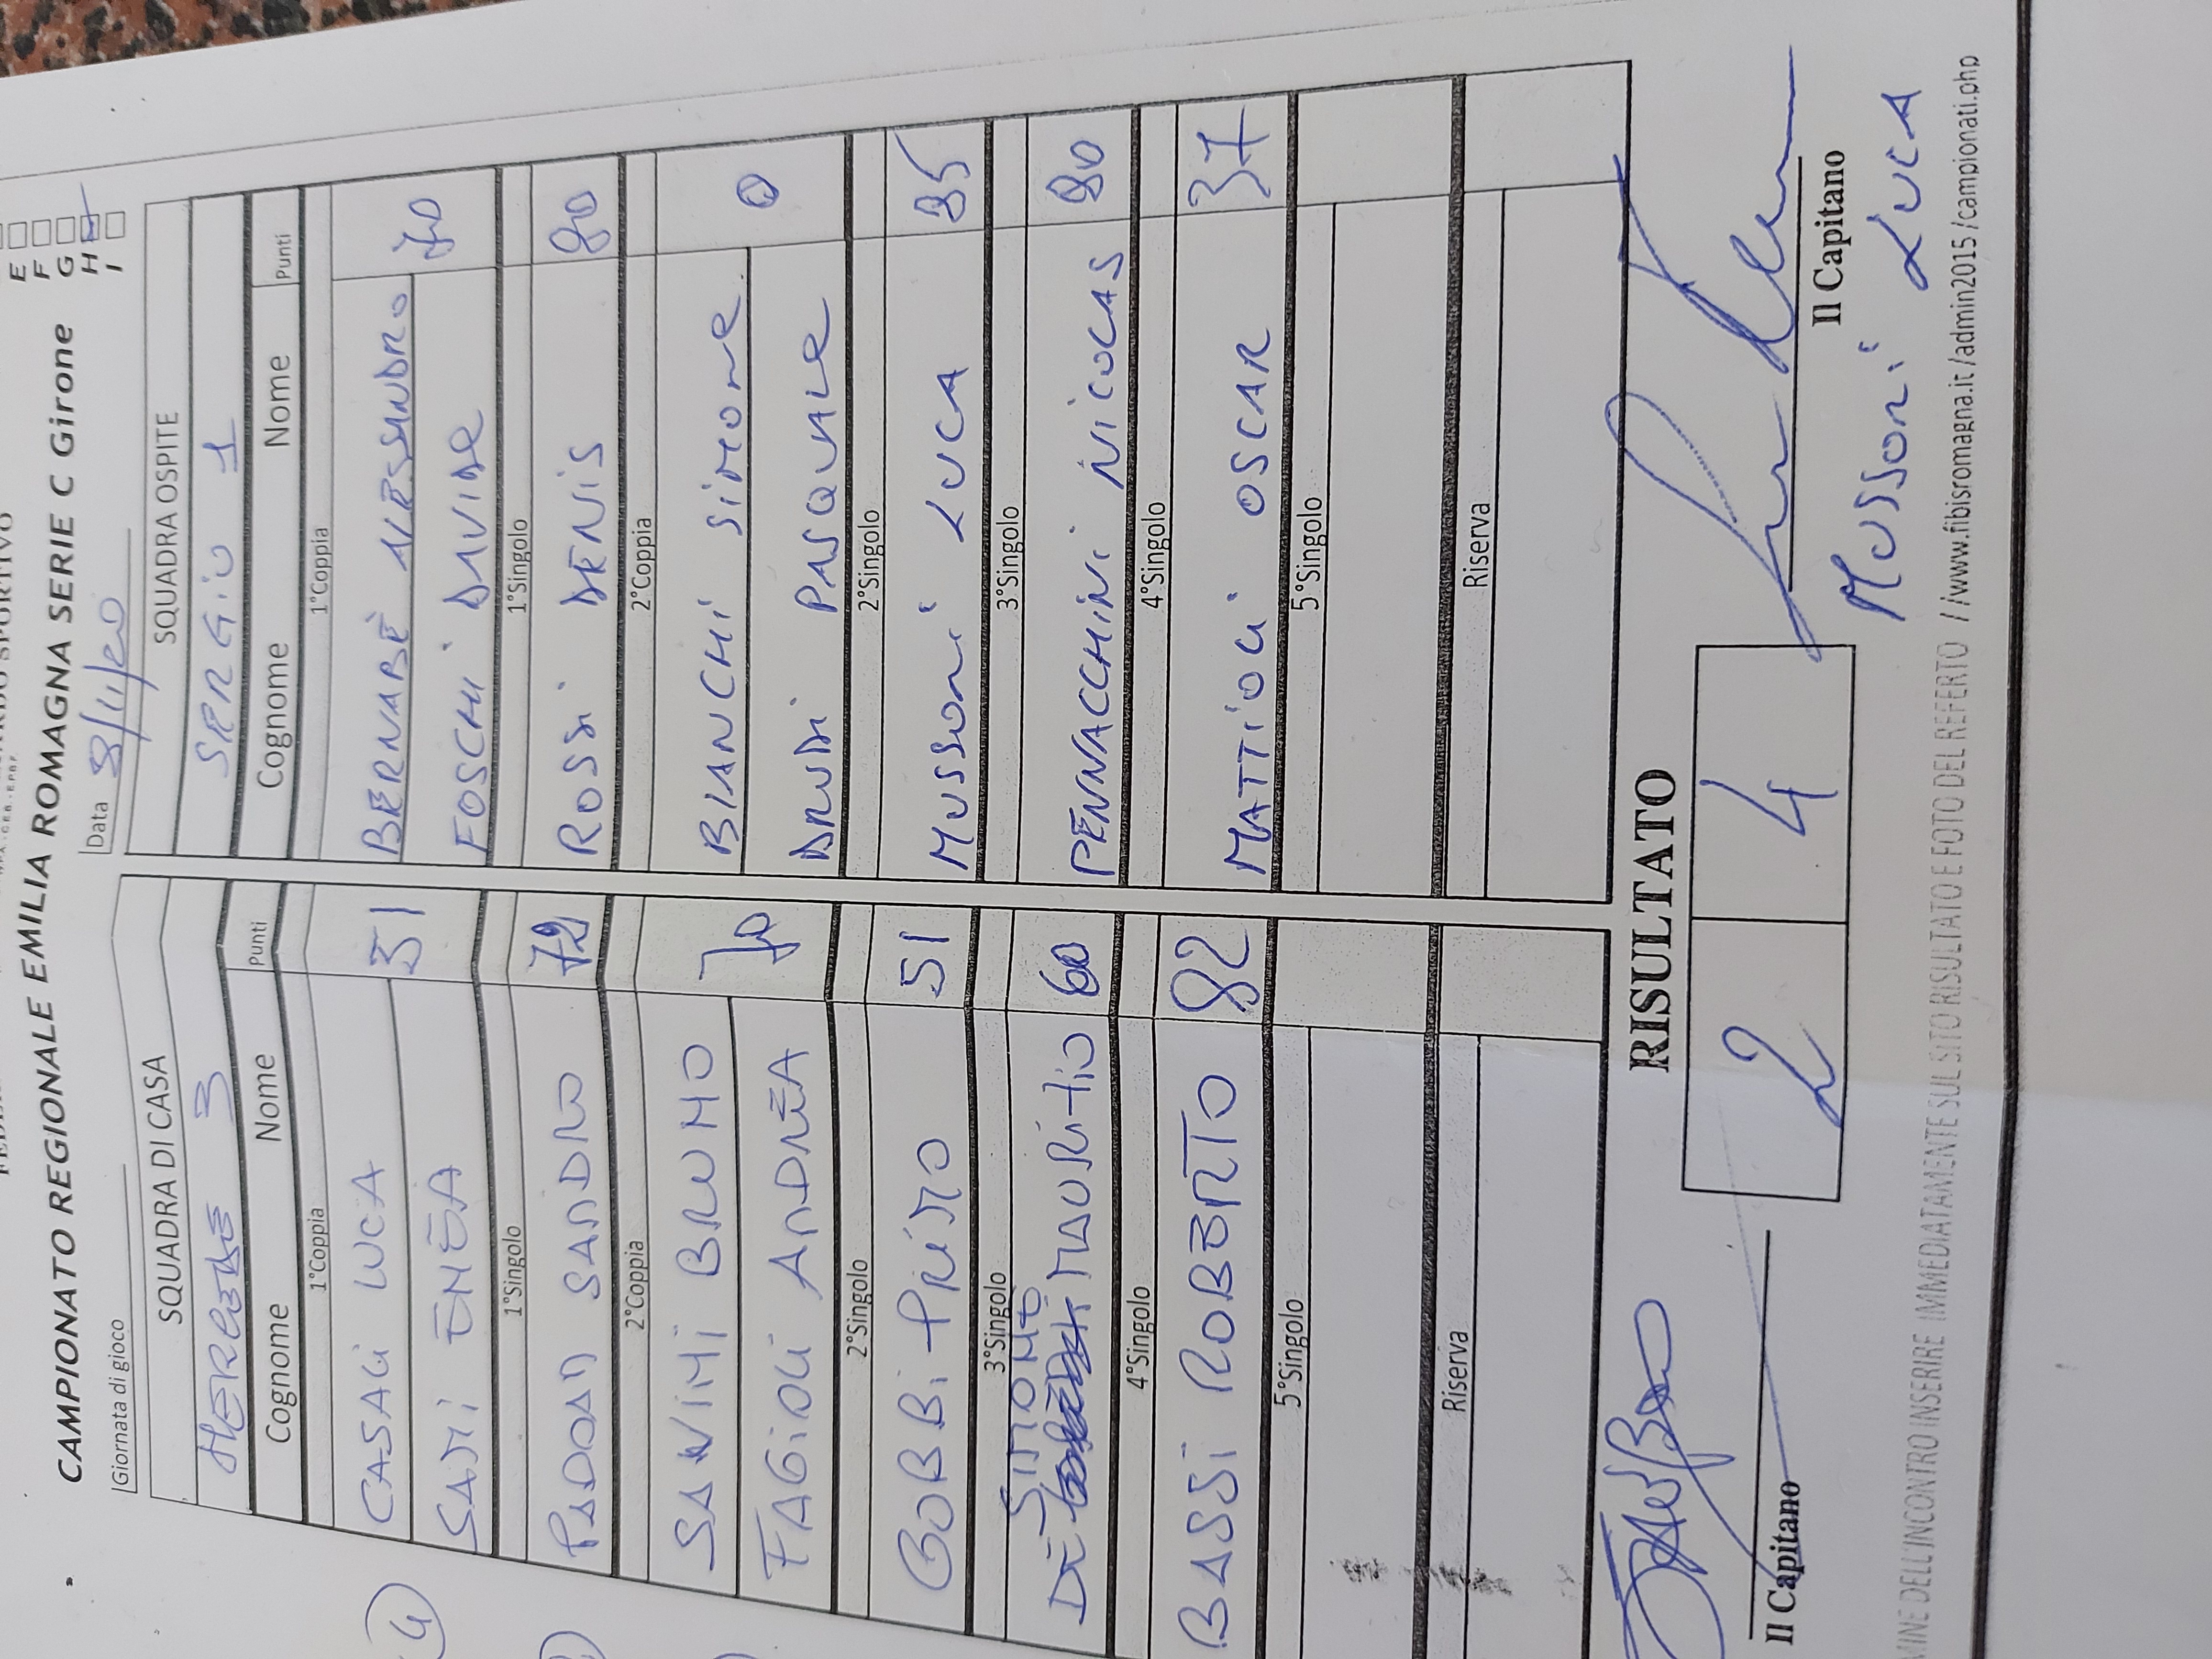 CAMPIONATO REGIONALE EMILIA ROMAGNA SERIE C Girone
E
F
G
H
I
Giornata di gioco
Data 3/11/20
SQUADRA DI CASA
SQUADRA OSPITE
3
SERGIO 1
Cognome Nome Punti
Cognome Nome Punti
1°Coppia
1°Coppia
CASALI LUCA 51
BERNABÈ ALESSANDRO 70
SAMI ENEA
FOSCHI DAVIDE
1°Singolo
1°Singolo
PADOAN SANDRO 72
ROSSI DENIS 80
2°Coppia
2°Coppia
SAVINI BRUNO 70
BIANCHI SIMONE 0
FAGIOLI ANDREA
DRUDI PASQUALE
2°Singolo
2°Singolo
GOBBI PRIMO 51
MUSSONI LUCA 85
3°Singolo
3°Singolo
DI SIMONE MAURIZIO 60
PENNACCHINI NICOLAS 80
4°Singolo
4°Singolo
BASSI ROBERTO 82
MATTIOLI OSCAR 37
5°Singolo
5°Singolo
Riserva
Riserva
RISULTATO
2 4
Il Capitano
Il Capitano
MUSSONI LUCA
INE DELL'INCONTRO INSERIRE IMMEDIATAMENTE SUL SITO RISULTATO E FOTO DEL REFERTO //www.fibisromagna.it/admin2015/campionati.php
4